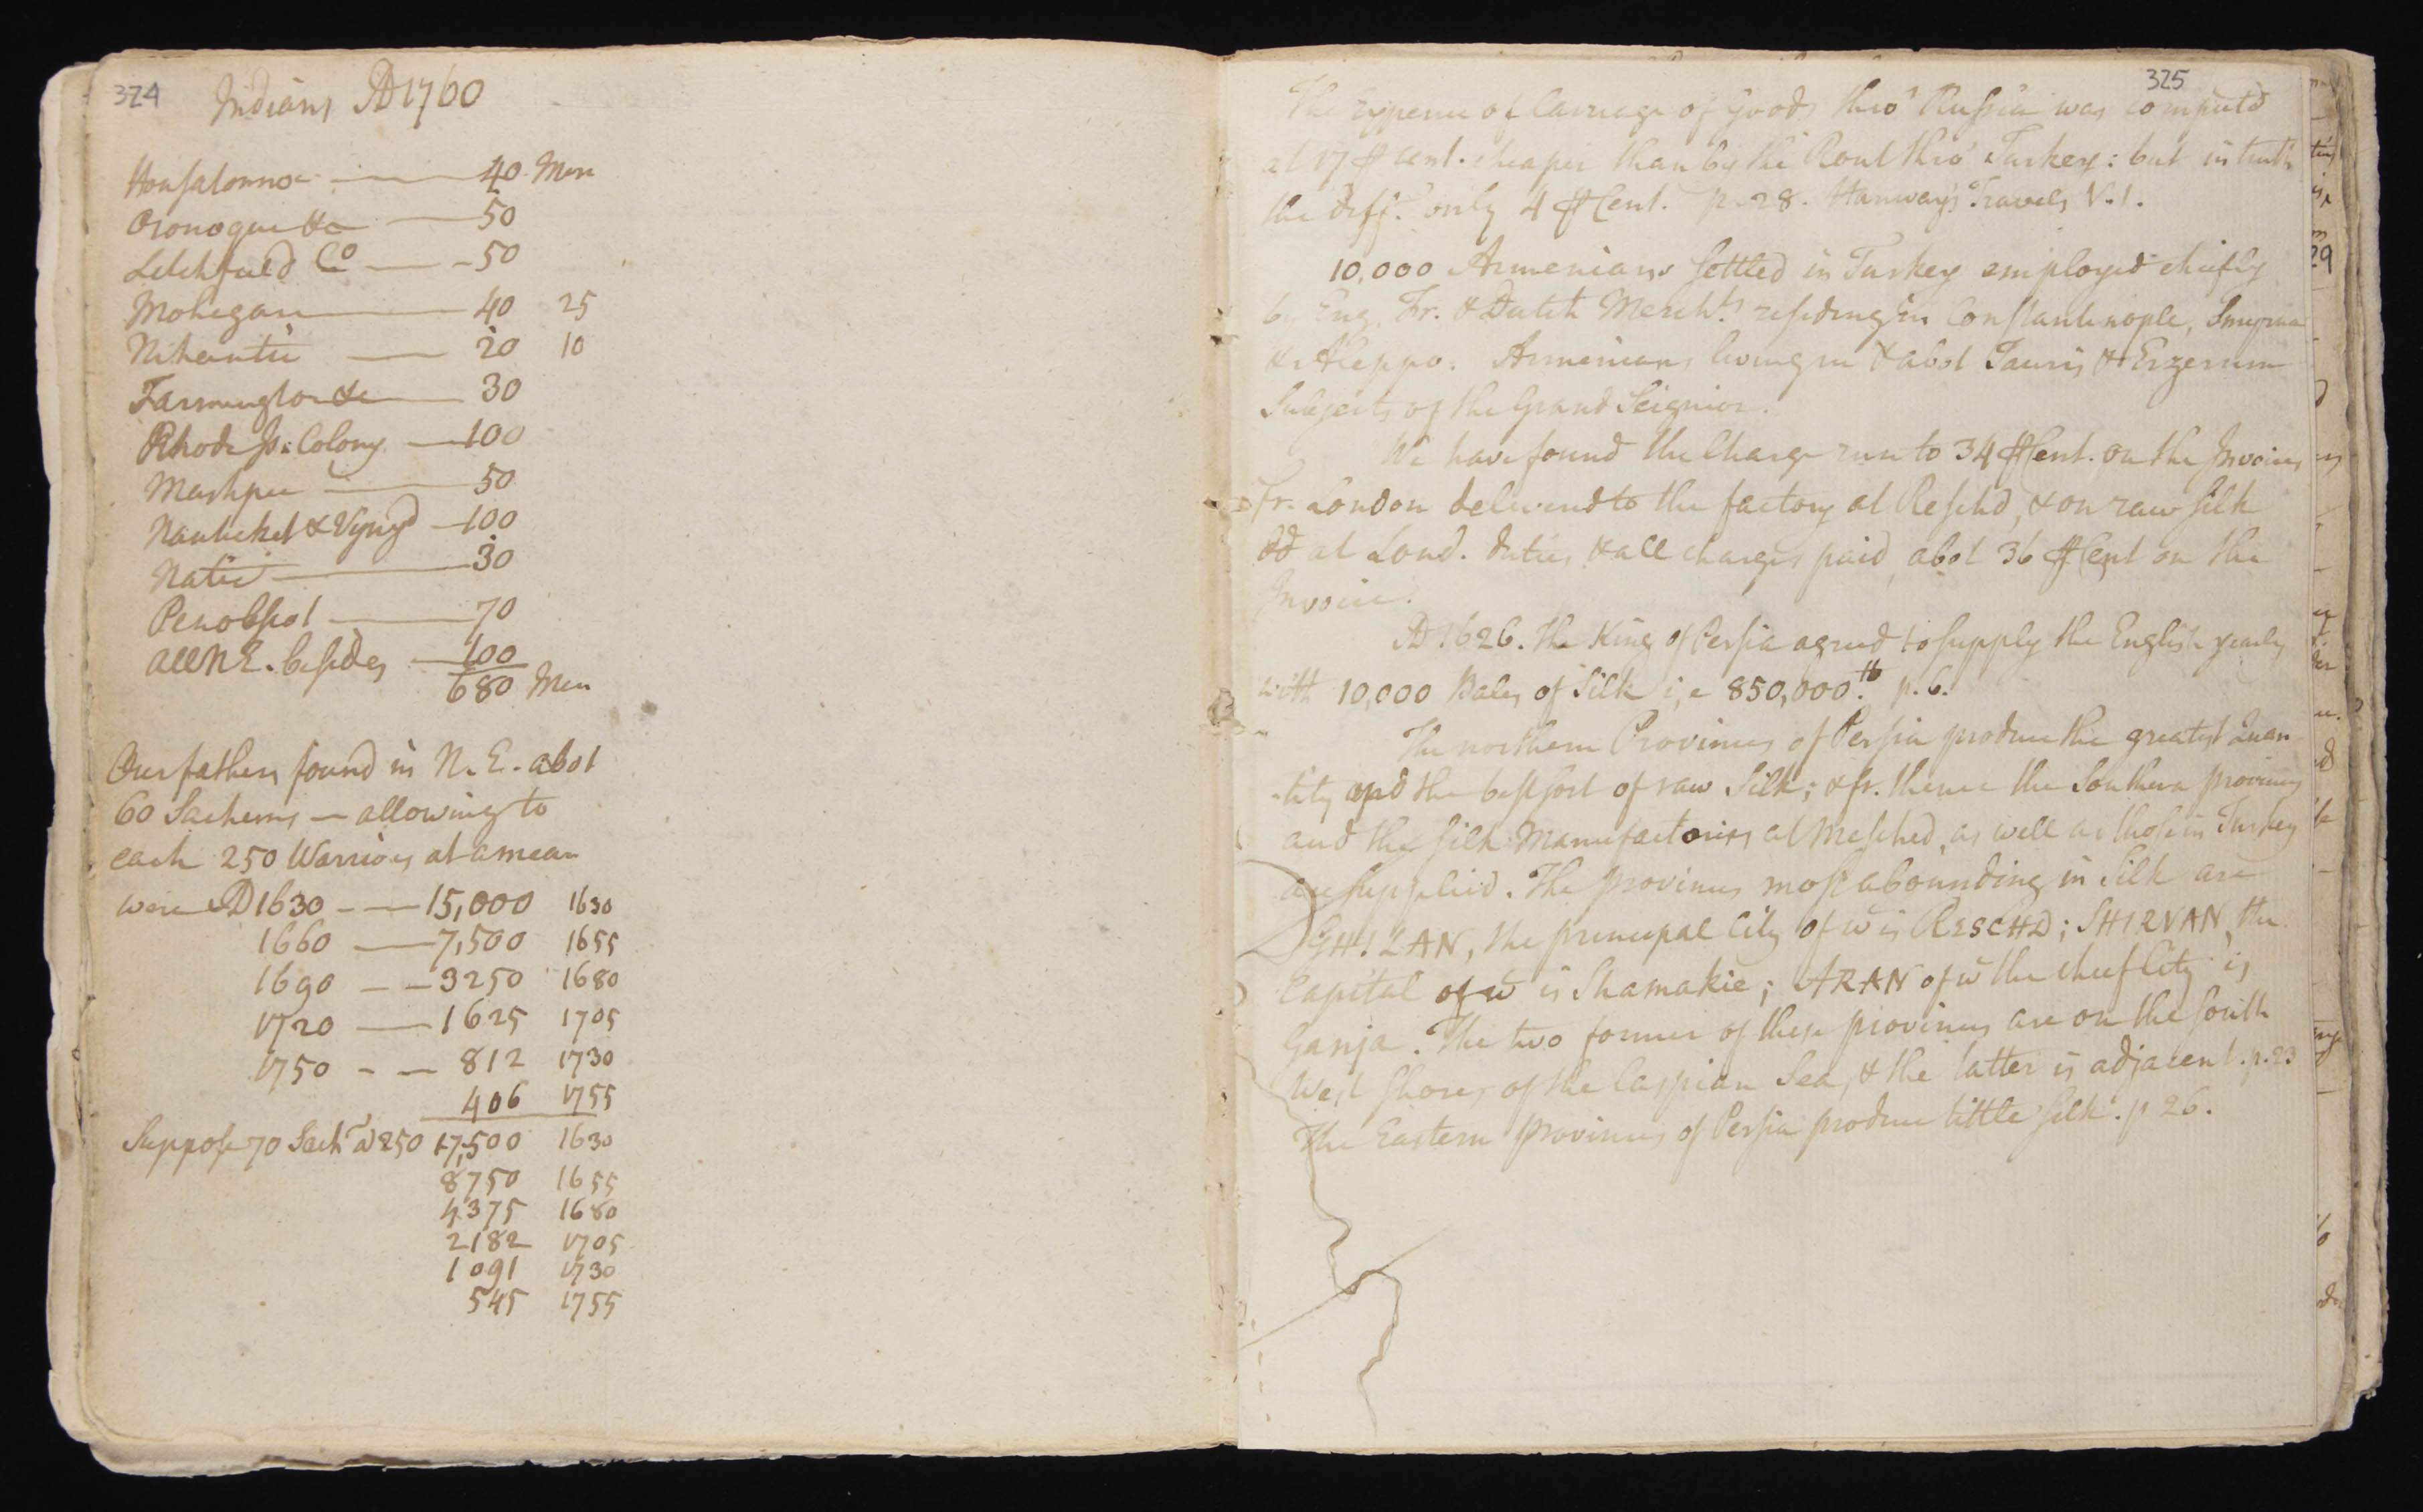 324
Indians AD 1760
Housatonnoc — 40 Men
Oronoque &c — 50
Litchfield Co — 50
Mohegan — 40 25
Nihantic — 20 10
Farmington &c — 30
Rhode Isl Colony — 100
Mashpee — 50
Nantucket & Vynyd — 100
Natic — 30
Penobscot — 70
all N E. besides — 100
680 Men
Our fathers found in N. E. abot
60 Sachems — allowing to
each 250 Warriors at a mean
were AD 1630 — 15,000 1630
1660 — 7,500 1655
1690 — 3250 1680
1720 — 1625 1705
1750 — 812 1730
406 1755
Suppose 70 Sach. a 250 17,500 1630
8750 1655
4375 1680
2182 1705
1091 1730
545 1755
325
The Expence of Carriage of Goods thro' Russia was computd
at 17 ⅌ cent. cheaper than by the Rout thro' Turkey: but in truth
the diff. only 4 ⅌ Cent. p. 28. Hanway's Travels V. 1.
10,000 Armenians settled in Turkey employed chiefly
by Eng. Fr. & Dutch Merchts residing in Constantinople, Smyrna
& Aleppo. Armenians living in & abot Tauris & Erzerum
Subjects of the Grand Seignior.
We have found the Charge run to 34 ⅌ Cent. on the Invoices
fr. London delivered to the factory at Reschd, & on raw silk
dd at Lond. duties & all charges paid, abot 36 ⅌ Cent on the
Invoice.
AD 1626. the King of Persia agreed to supply the English yearly
with 10,000 Bales of Silk i,e 850,000 lb. p. 6.
The northern Provinces of Persia produce the greatest Quan
-tity and the best sort of raw Silk; & fr. thence the Southern provinces
and the silk Manufactories at Mesched, as well as those in Turkey
are supplied. The provinces most abounding in Silk are
GHILAN, the principal City of wc is RESCHD; SHIRVAN, the
Capital of wc is Shamakie; ARAN of wc the chief City is
Ganja. The two former of these provinces are on the South
West shores of the Caspian Sea, & the latter is adjacent. p. 23
The Eastern provinces of Persia produce little silk. p 26.